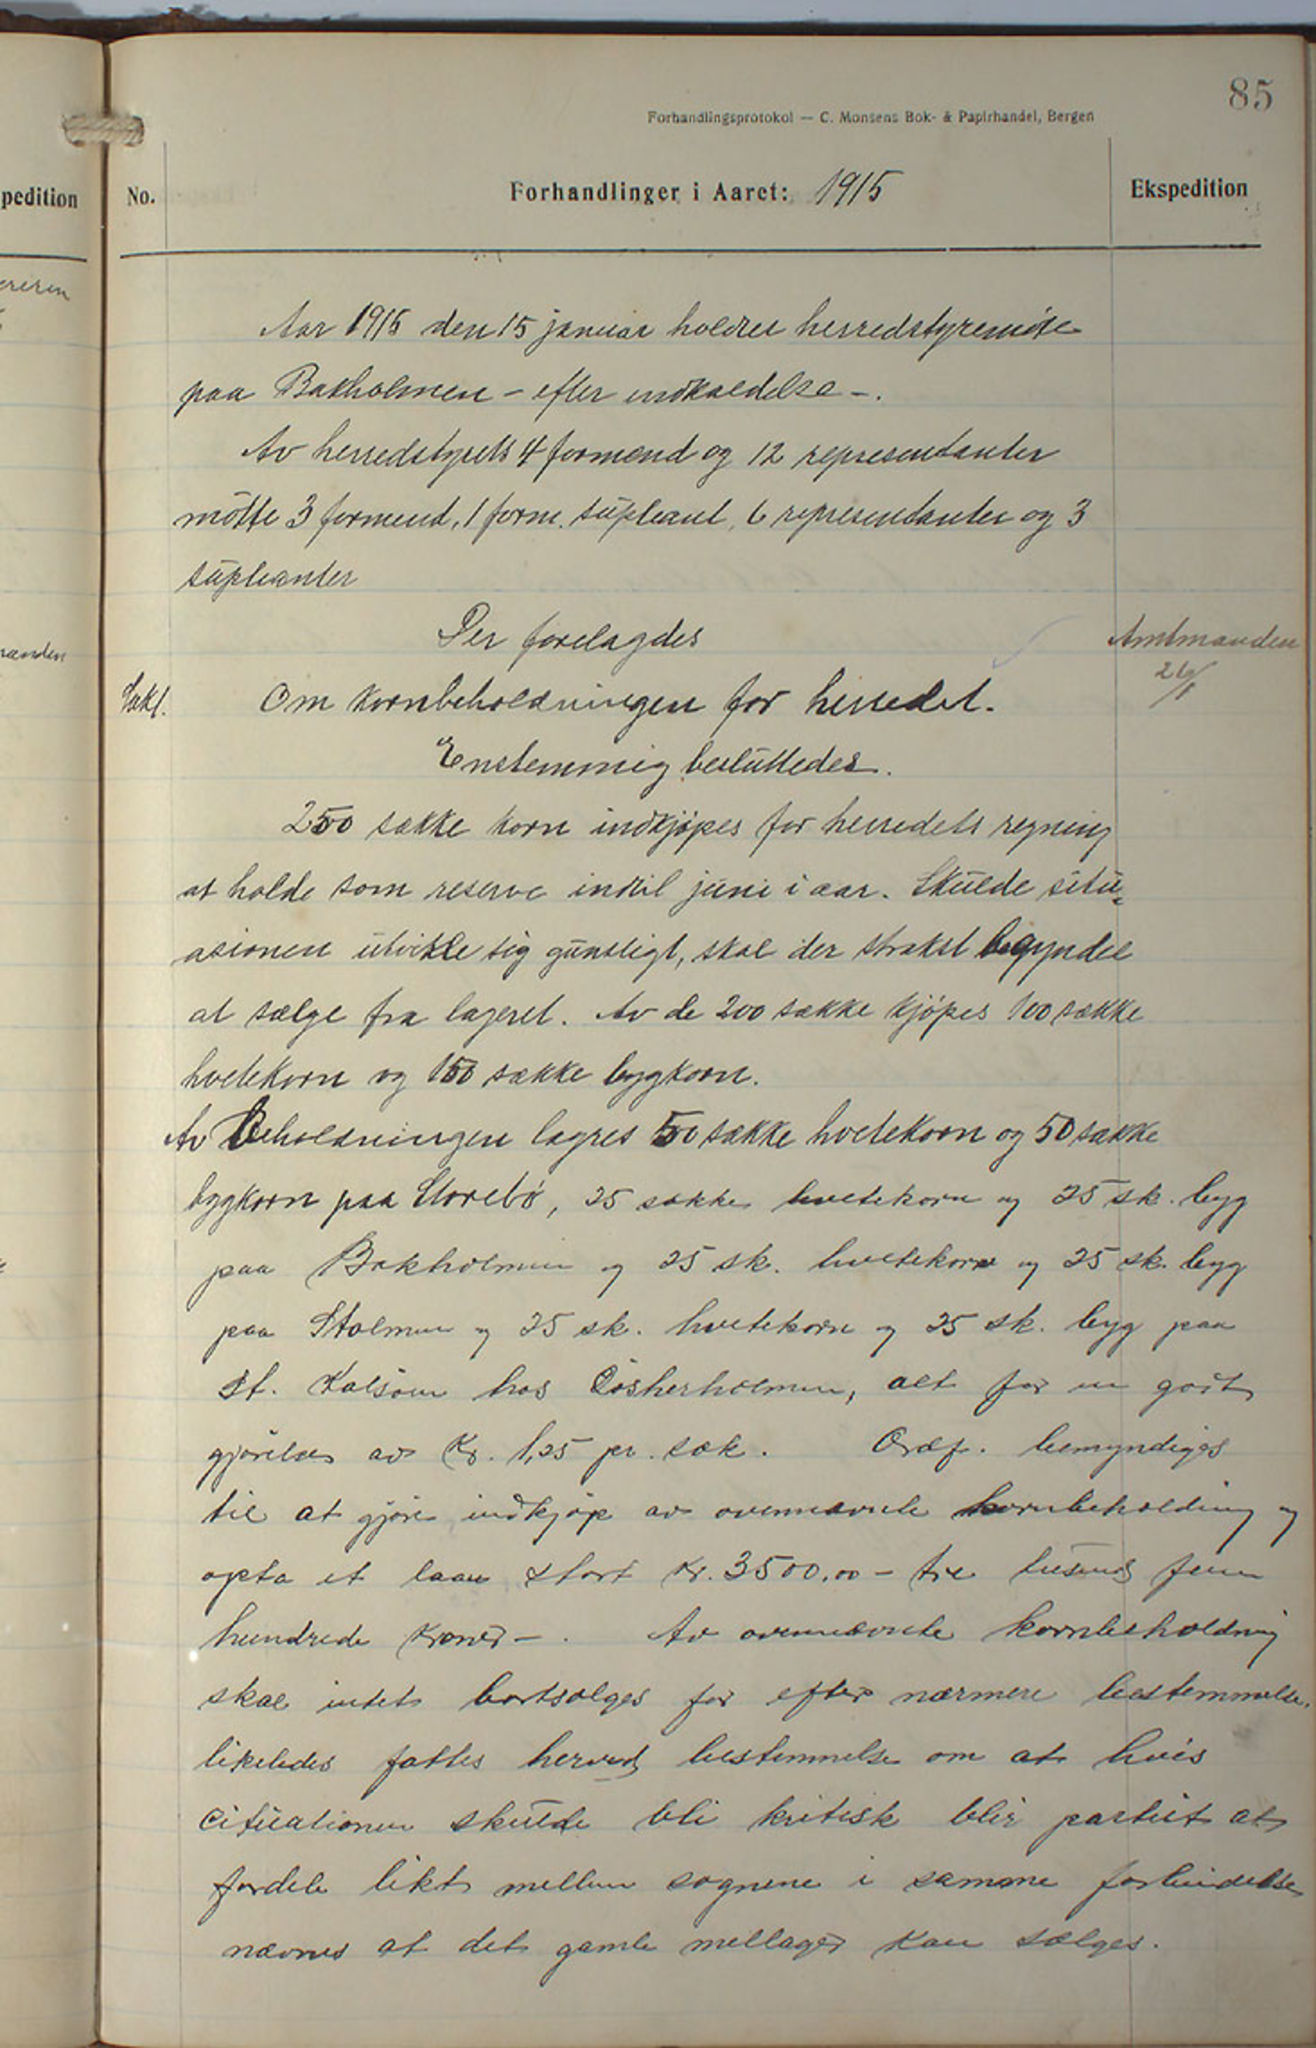 85
Forhandlingsprotokol — C. Monsens Bok- & Papirhandel, Bergen
pedition
No.
Forhandlinger i Aaret: 1915
Ekspedition
Aar 1915 den 15 januar holdtes herredstyremöte
paa Bakholmen – efter indkaldelse –.
Av herredstyrets 4 formænd og 12 representanter
mötte 3 formend, 1 form. supleant, 6 representanter og 3
supleanter
Der forelagdes
Amtmanden
26/1
Sak 1.
Om kornbeholdningen for herredet.
Enstemmig besluttedes.
250 sække korn indkjøpes for herredets regning
at holde som reserve indtil juni i aar. Skulde situ-
asionen utvikle sig gunstigt, skal der strakst begyndes
at sælge fra lageret. Av de 200 sække kjøpes 100 sække
hvetekorn og 150 sække bygkorn.
Av Beholdningen lagres 50 sække hvetekorn og 50 sække
bygkorn paa Storebö, 25 sække hvetekorn og 25 sk. byg
paa Bakholmen og 25 sk. hvetekorn og 25 sk. byg
paa Stolmen og 25 sk. hvetekorn og 25 sk. byg paa
St. Kalsöen hos, alt for en godt
gjörelse av Kr. 1,25 pr. sæk. Ordf. bemyndiges
til at gjöre indkjøp av ovennævnte kornbeholding og
opta et laan stort Kr. 3500,00 – tre tusend fem
hundrede kroner –. Av ovennævnte kornbeholdning
skal intet bortsælges før efter nærmere bestemmelse.
likeledes fattes herved bestemmelse om at hvis
cituationen skulde bli kritisk blir partiet at
fordele likt mellem sognene i samme forbindelse
nævnes at det gamle mellager kan sælges.